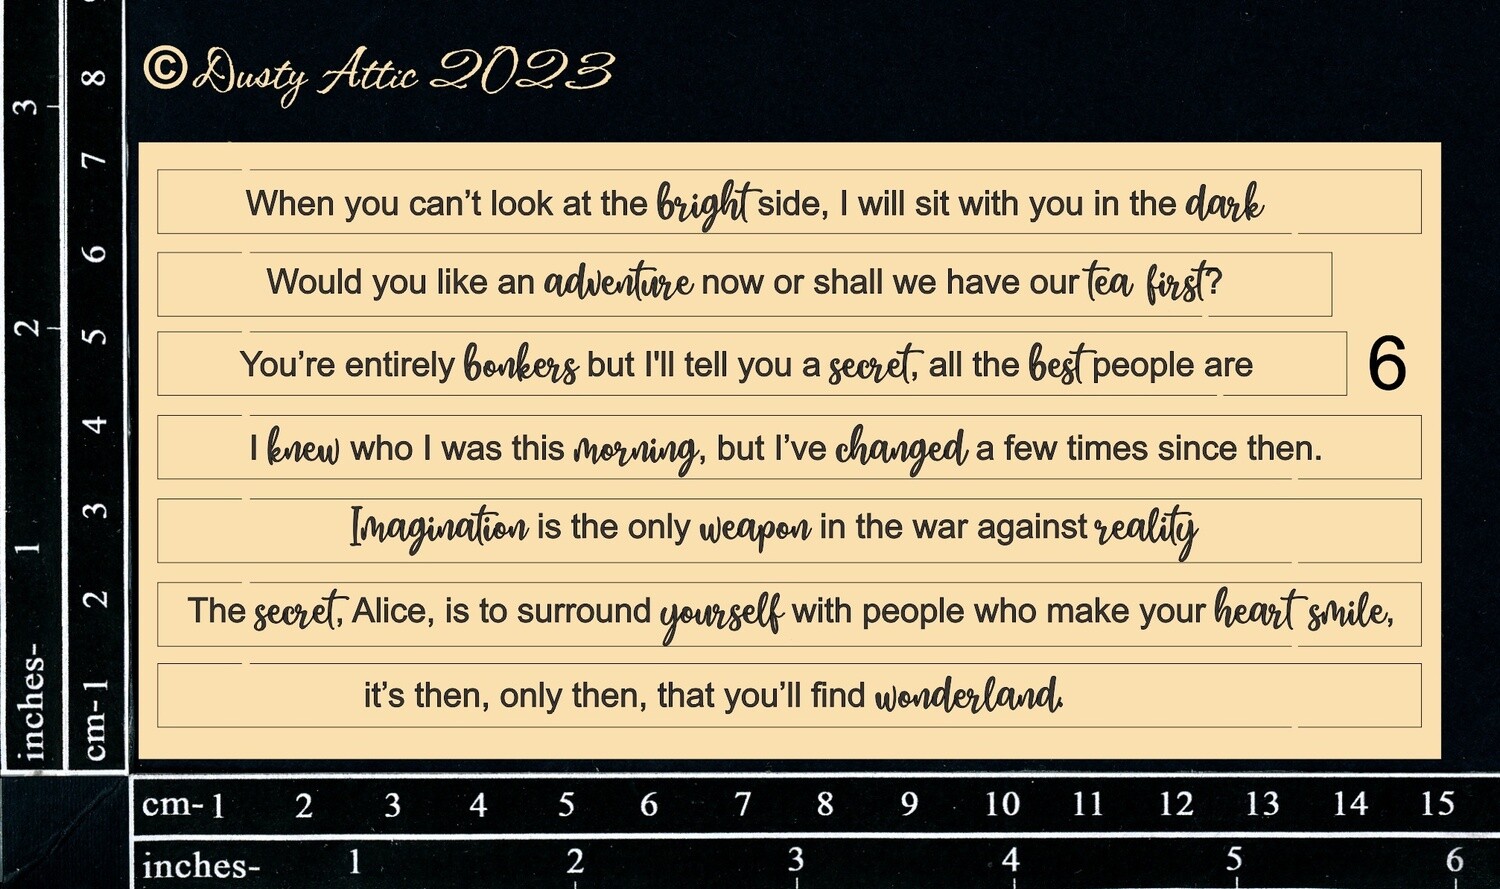 ©Dusty Attic 2023
When you can’t look at the bright side, I will sit with you in the dark
Would you like an adventure now or shall we have our tea first?
You’re entirely bonkers but I'll tell you a secret, all the best people are
6
I knew who I was this morning, but I’ve changed a few times since then.
Imagination is the only weapon in the war against reality
The secret, Alice, is to surround yourself with people who make your heart smile,
it’s then, only then, that you’ll find wonderland.
inches- 1 2 3
cm-1 2 3 4 5 6 7 8
cm-1 2 3 4 5 6 7 8 9 10 11 12 13 14 15
inches- 1 2 3 4 5 6